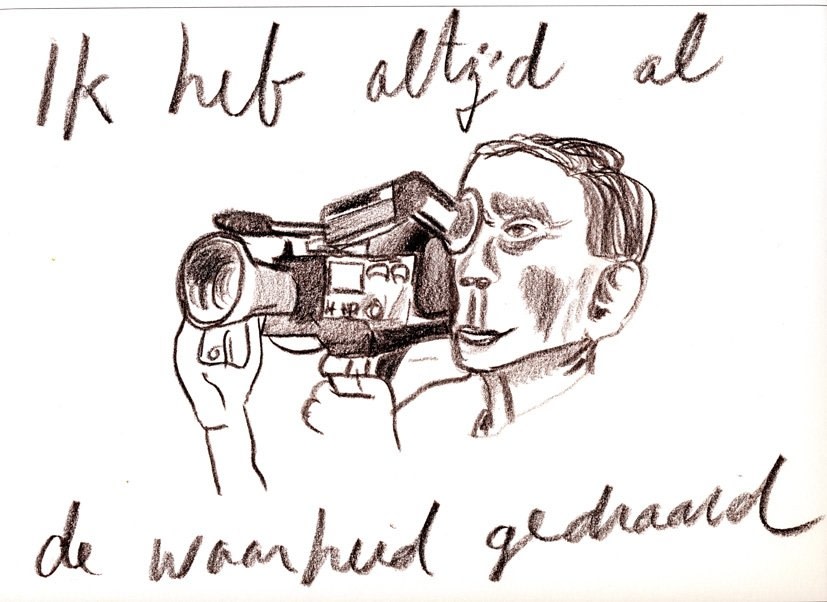 Ik heb altijd al
de waarheid gedraaid